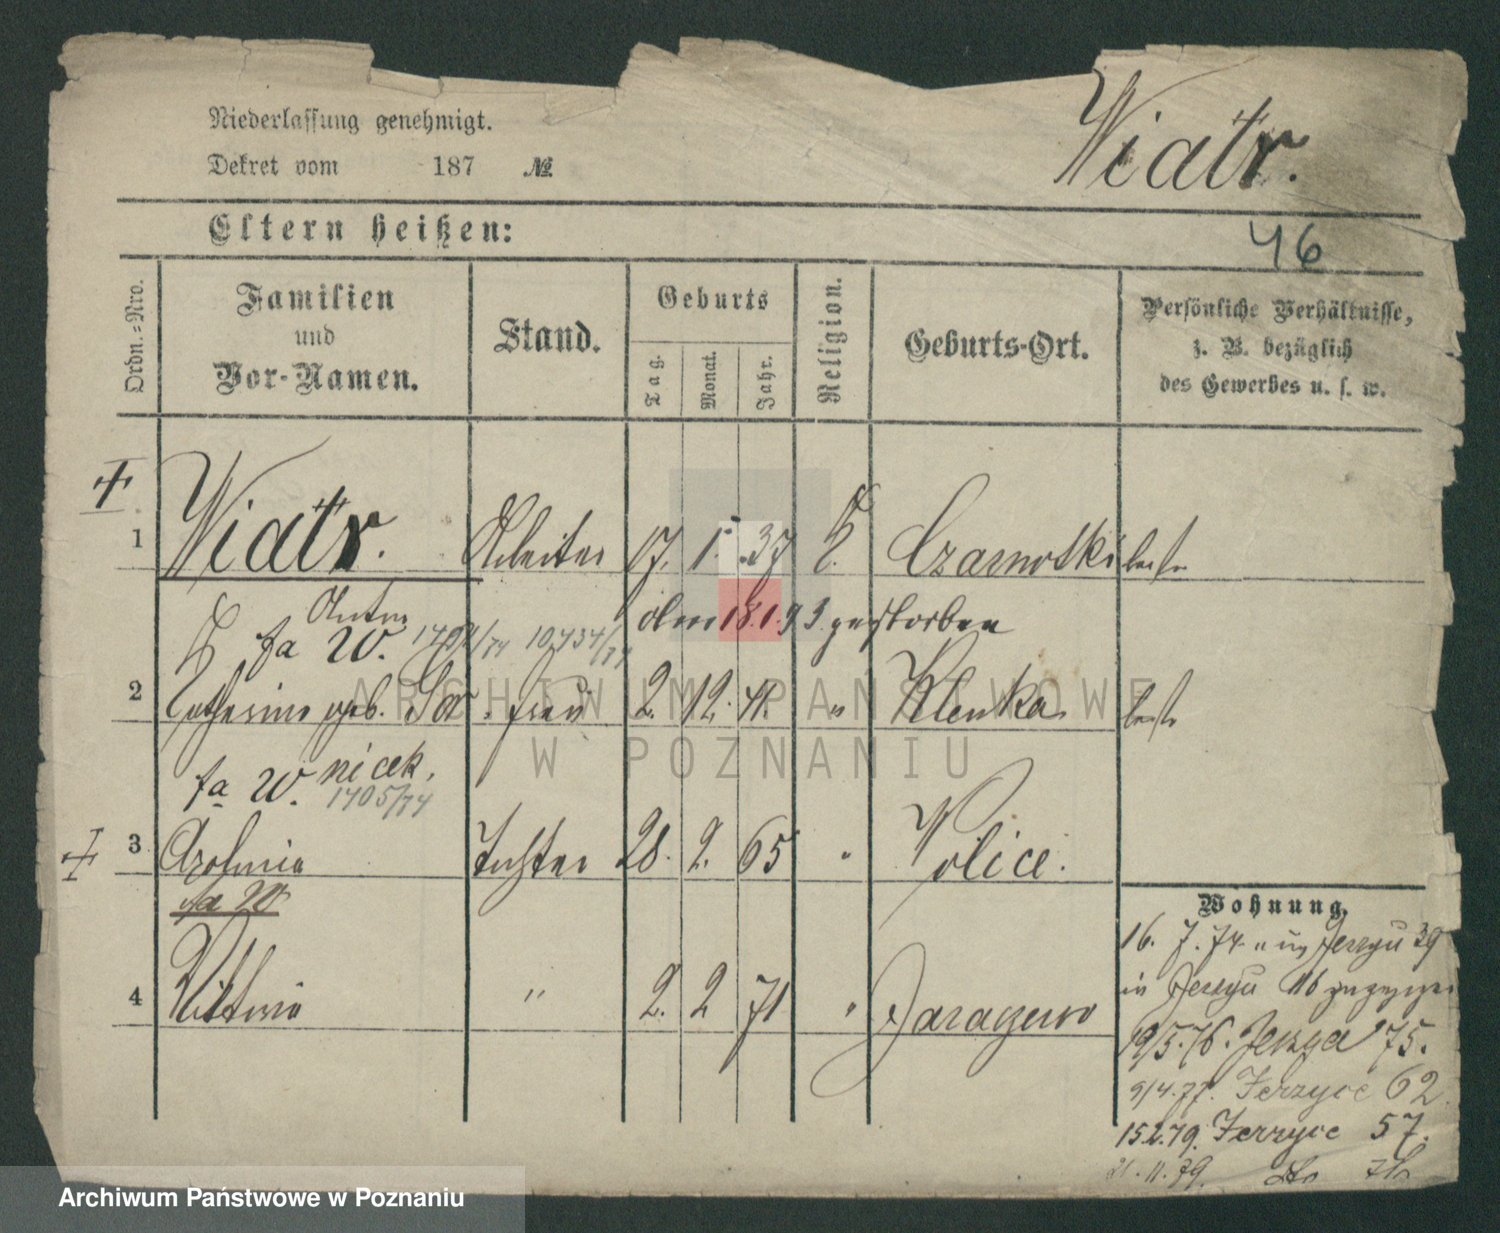 Niederlassung genehmigt.
Dekret vom 187 №
Wiatr.
Eltern heißen:
46
Ordn.=Nro.
Familien
und
Vor-Namen.
Stand.
Geburts
Tag.
Monat.
Jahr.
Religion.
Geburts-Ort.
Persönliche Verhältnisse,
z. B. bezüglich
des Gewerbes u. s. w.
1 Wiatr. Arbeiter 17. 1. 37 Czarnotki
Anton
fa W.
am 18.1.93 gestorben
2 Catharina geb. Frau 2. 12. 41. " Klenka
fa W. nicek.
1405/74
3 Apolonia Tochter 28. 2. 65 " Police.
fa W
4 Viktoria " 2. 2 71 "
Wohnung.
16. 7. 74. Jerzyce 39
in Jerzyce 46 zugezogen
19/5. 76. 75.
9/4. 77. Jerzyce 62
15.2.79. Jerzyce 57.
21. 11. 79.
ARCHIWUM PAŃSTWOWE
W POZNANIU
Archiwum Państwowe w Poznaniu